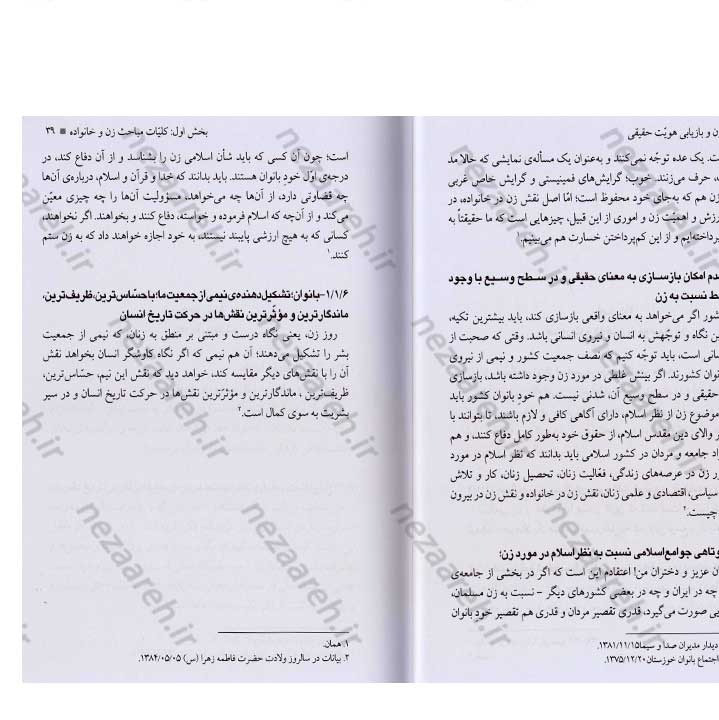 ن و بازیابی هویّت حقیقی
ت. یک عده توجّه نمی‌کنند و به‌عنوان یک مسأله‌ی نمایشی که حالا مد
، حرف می‌زنند. خوب؛ گرایش‌های فمینیستی و گرایش خاص غربی
زن هم که به‌جای خود محفوظ است؛ امّا اصل نقش زن در خانواده، در
رزش و اهمیّت زن و اموری از این قبیل، چیزهایی است که ما حقیقتاً به
پرداخته‌ایم و از این کم‌پرداختن خسارت هم می‌بینیم.۱
دم امکان بازسازی به معنای حقیقی و در سطح وسیع با وجود
ط نسبت به زن
شور اگر می‌خواهد به معنای واقعی بازسازی کند، باید بیشترین تکیه،
ن نگاه و توجّهش به انسان و نیروی انسانی باشد. وقتی که صحبت از
سانی است، باید توجّه کنیم که نصف جمعیت کشور و نیمی از نیروی
وان کشورند. اگر بینش غلطی در مورد زن وجود داشته باشد، بازسازی
حقیقی و در سطح وسیع آن، شدنی نیست. هم خود بانوان کشور باید
موضوع زن از نظر اسلام، دارای آگاهی کافی و لازم باشند، تا بتوانند با
ر والای دین مقدس اسلام، از حقوق خود به‌طور کامل دفاع کنند، و هم
اد جامعه و مردان در کشور اسلامی باید بدانند که نظر اسلام در مورد
ور زن در عرصه‌های زندگی، فعّالیت زنان، تحصیل زنان، کار و تلاش
سیاسی، اقتصادی و علمی زنان، نقش زن در خانواده و نقش زن در بیرون
چیست.۲
وتاهی جوامع اسلامی نسبت به نظر اسلام در مورد زن؛
ن عزیز و دختران من! اعتقادم این است که اگر در بخشی از جامعه‌ی
چه در ایران و چه در بعضی کشورهای دیگر - نسبت به زن مسلمان،
یی صورت می‌گیرد، قدری تقصیر مردان و قدری هم تقصیر خود بانوان
دیدار مدیران صدا و سیما ۱۳۸۱/۱۱/۱۵.
اجتماع بانوان خوزستان ۱۳۷۵/۱۲/۲۰.
بخش اول: کلیّات مباحث زن و خانواده ■ ۳۹
است؛ چون آن کسی که باید شأن اسلامی زن را بشناسد و از آن دفاع کند، در
درجه‌ی اوّل خودِ بانوان هستند. باید بدانند که خدا و قرآن و اسلام، درباره‌ی آن‌ها
چه قضاوتی دارد، از آن‌ها چه می‌خواهد، مسؤولیت آن‌ها را چه چیزی معیّن
می‌کند و از آن‌چه که اسلام فرموده و خواسته، دفاع کنند و بخواهند. اگر نخواهند،
کسانی که به هیچ ارزشی پایبند نیستند، به خود اجازه خواهند داد که به زن ستم
کنند.۱
۱/۱/۶- بانوان؛ تشکیل‌دهنده‌ی نیمی از جمعیت ما؛ با حسّاس‌ترین، ظریف‌ترین،
ماندگارترین و مؤثّرترین نقش‌ها در حرکت تاریخ انسان
روز زن، یعنی نگاه درست و مبتنی بر منطق به زنان، که نیمی از جمعیت
بشر را تشکیل می‌دهند؛ آن هم نیمی که اگر نگاه کاوشگر انسان بخواهد نقش
آن را با نقش‌های دیگر مقایسه کند، خواهد دید که نقش این نیم، حسّاس‌ترین،
ظریف‌ترین، ماندگارترین و مؤثرترین نقش‌ها در حرکت تاریخ انسان و در سیر
بشریت به سوی کمال است.۲
۱. همان.
۲. بیانات در سالروز ولادت حضرت فاطمه زهرا (س) ۱۳۸۴/۰۵/۰۵.
nezaareh.ir
nezaareh.ir
nezaareh.ir
nezaareh.ir
nezaareh.ir
nezaareh.ir
nezaareh.ir
nezaareh.ir
nezaareh.ir